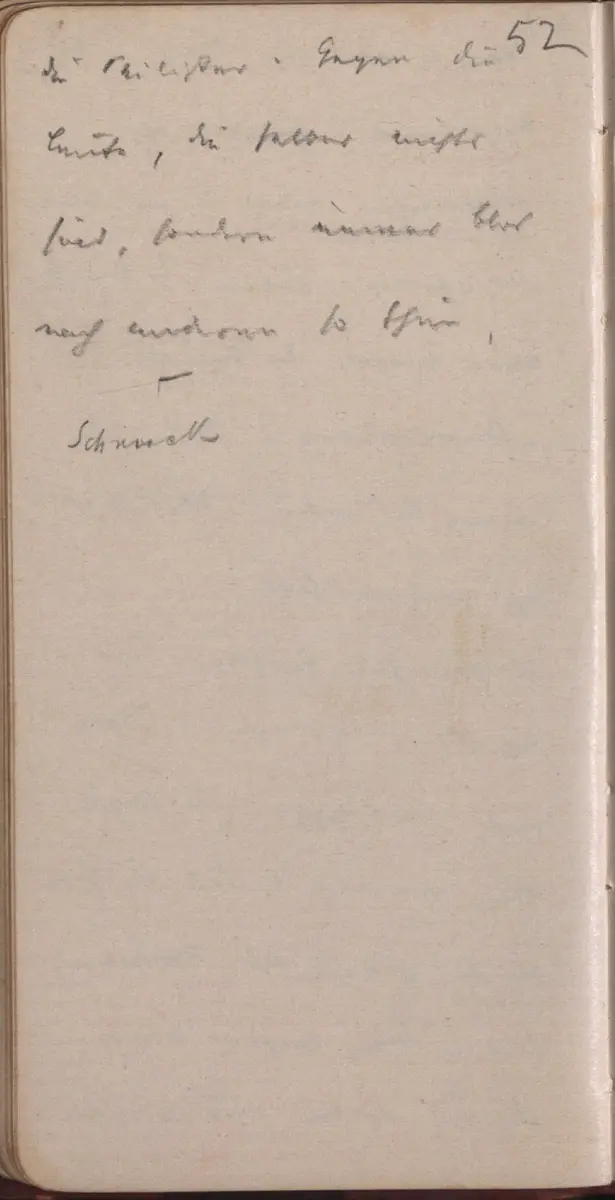 52
die Philister. Gegen die
Leute, die selber nichts
sind, sondern immer blos
nach anderen so thun,